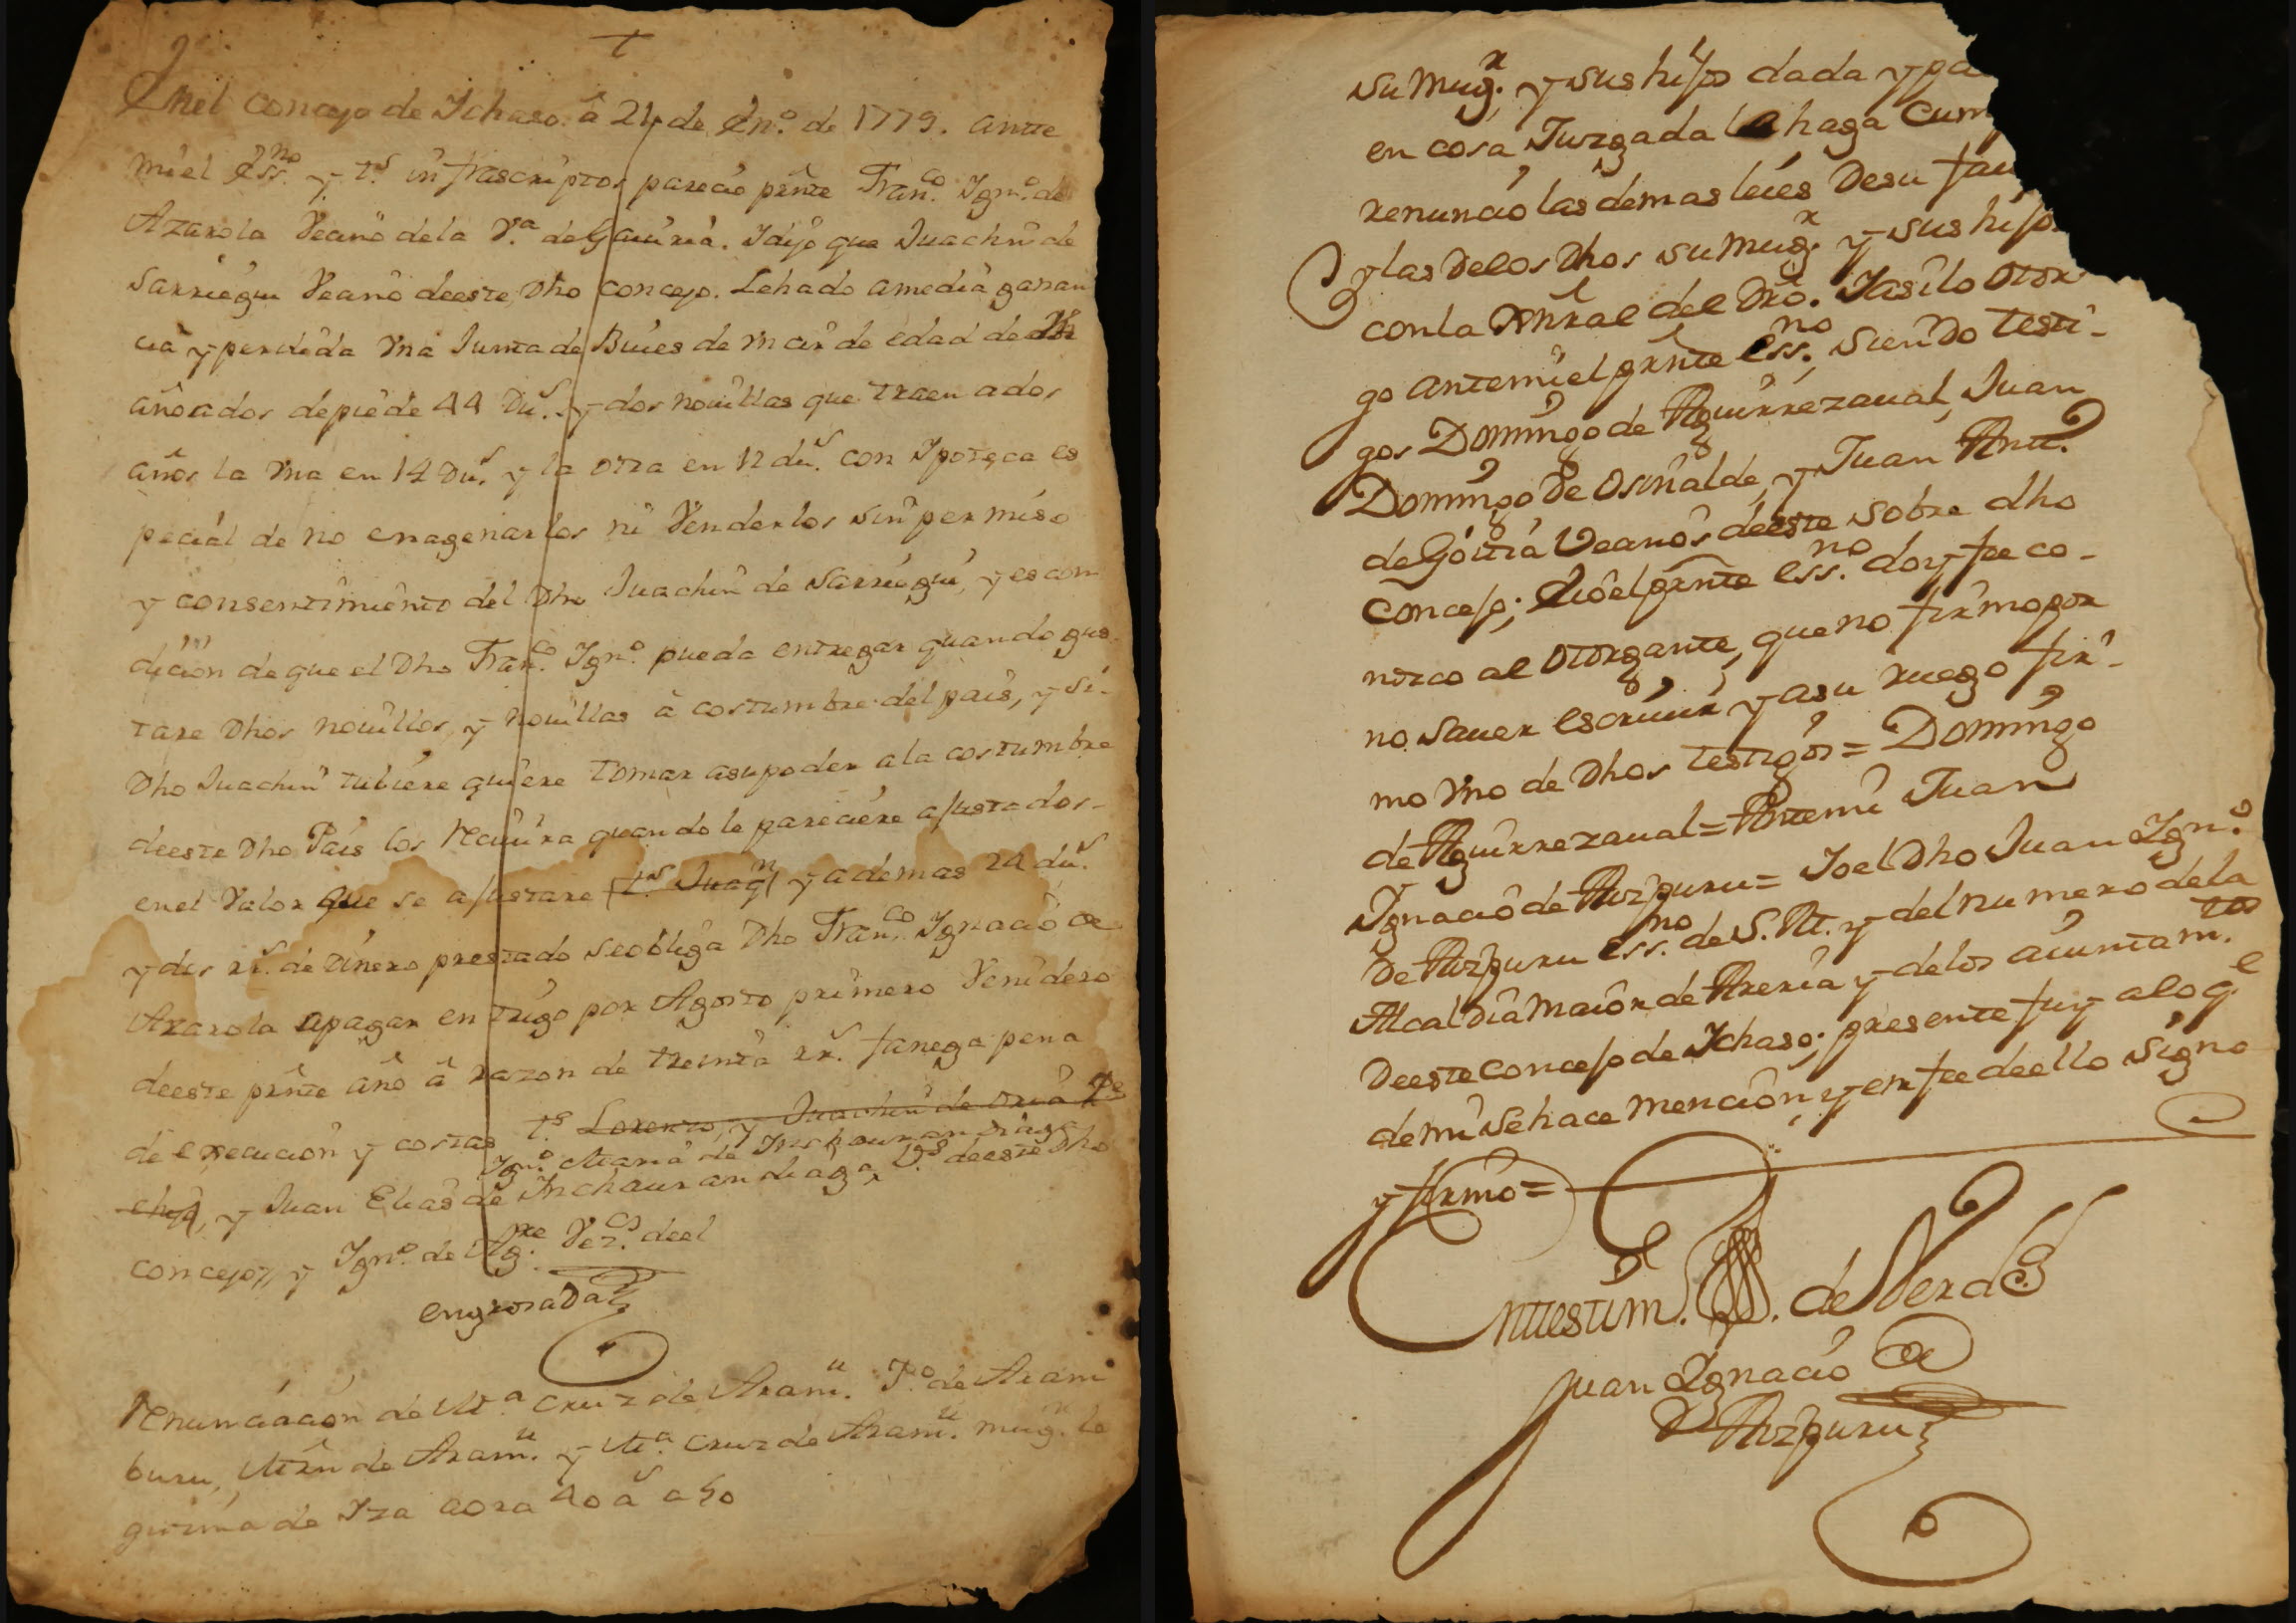 t
Enel concejo de Ichaso â 24 de En.º de 1779. ante
mi el Ess.no y t.s infrascriptos pareció pñte Fran.co Ign.º de
Azarola Vecino dela V.a de Gaviria. Y dijo que Juachin de
Sarriegui Vecino deeste Dho concejo. Le ha do a media ganan
cia y perdida vna Junta de Bueies de maior de edad de
años ados de pie de 44 Du.s y dos nouillas que traen ados
años la vna en 14 Du.s y la otra en 12 du.s con Ypoteca es
pecial de no enagenarlos ni Venderlos sin permiso
y consentimiento del Dho Juachin de Sarriegui, y es con
dición de que el Dho Fran.co Ign.º pueda entregar quando gus
tare Dhos nouillos, y nouillas â costumbre del pais, y si
Dho Juachin tubiere quiere tomar asupoder ala costumbre
deeste Dho Pais los Reciuira quando le pareciere ajustados
en el Valor que se ajustare t.s Juaq.n y ademas 24 du.s
y dos rr.s de dinero prestado se obliga Dho Fran.co Ignacio de
Azarola apagar en trigo por Agosto primero Venidero
deeste pñte año â razon de treinta rr.s fanega pena
de execucion y costas t.s Lorenzo, y Juachin de Oria
Ign.º Maria de Inchaurandiaga
y Juan Elias de Inchaurandiaga, V.s deeste Dho
concejo, y Ign.º de Ag.rre Vez.os deel
engrosada
Renunciación de M.a Cruz de Aram.u J.º de Aram
buru, Mrñ de Aram.u y M.a Cruz de Aram.u mug.r le
gitima de Yza aora 40 a.s a 50
su Mug.r y sus hijos dada y pa
en cosa Juzgada la haga Cum
renunció las demas leies Desu fau
y las Delos Dhos su Mug.r y sus hijos
con la Gnral del Dro. Y asilo otor
go ante mi el prnte Ess.no, siendo testi-
gos Domingo de Aguirrezaual, Juan
Domingo de Osinalde, y Juan Ant.º
de Goitia Vecinos deeste sobre dho
Concejo; Eio el prnte Ess.no doy fee co-
nozco al otorgante, que no firmo por
no sauer escriuir y asu ruego fir-
mo vno de Dhos testigos = Domingo
de Aguirrezaual = Antemi Juan
Ygnacio de Aizpuru = Yo el Dho Juan Ign.º
De Aizpuru Ess.no de S. M. y del numero dela
Alcaldia Maior de Areria y delos aiuntam.tos
Deeste concejo de Ichaso; presente fuy alo q.e
de mi se hace mención, y en fee deello Signo
y firmo =
En testim.º de Verdad
Juan Ignacio
De Aizpuru